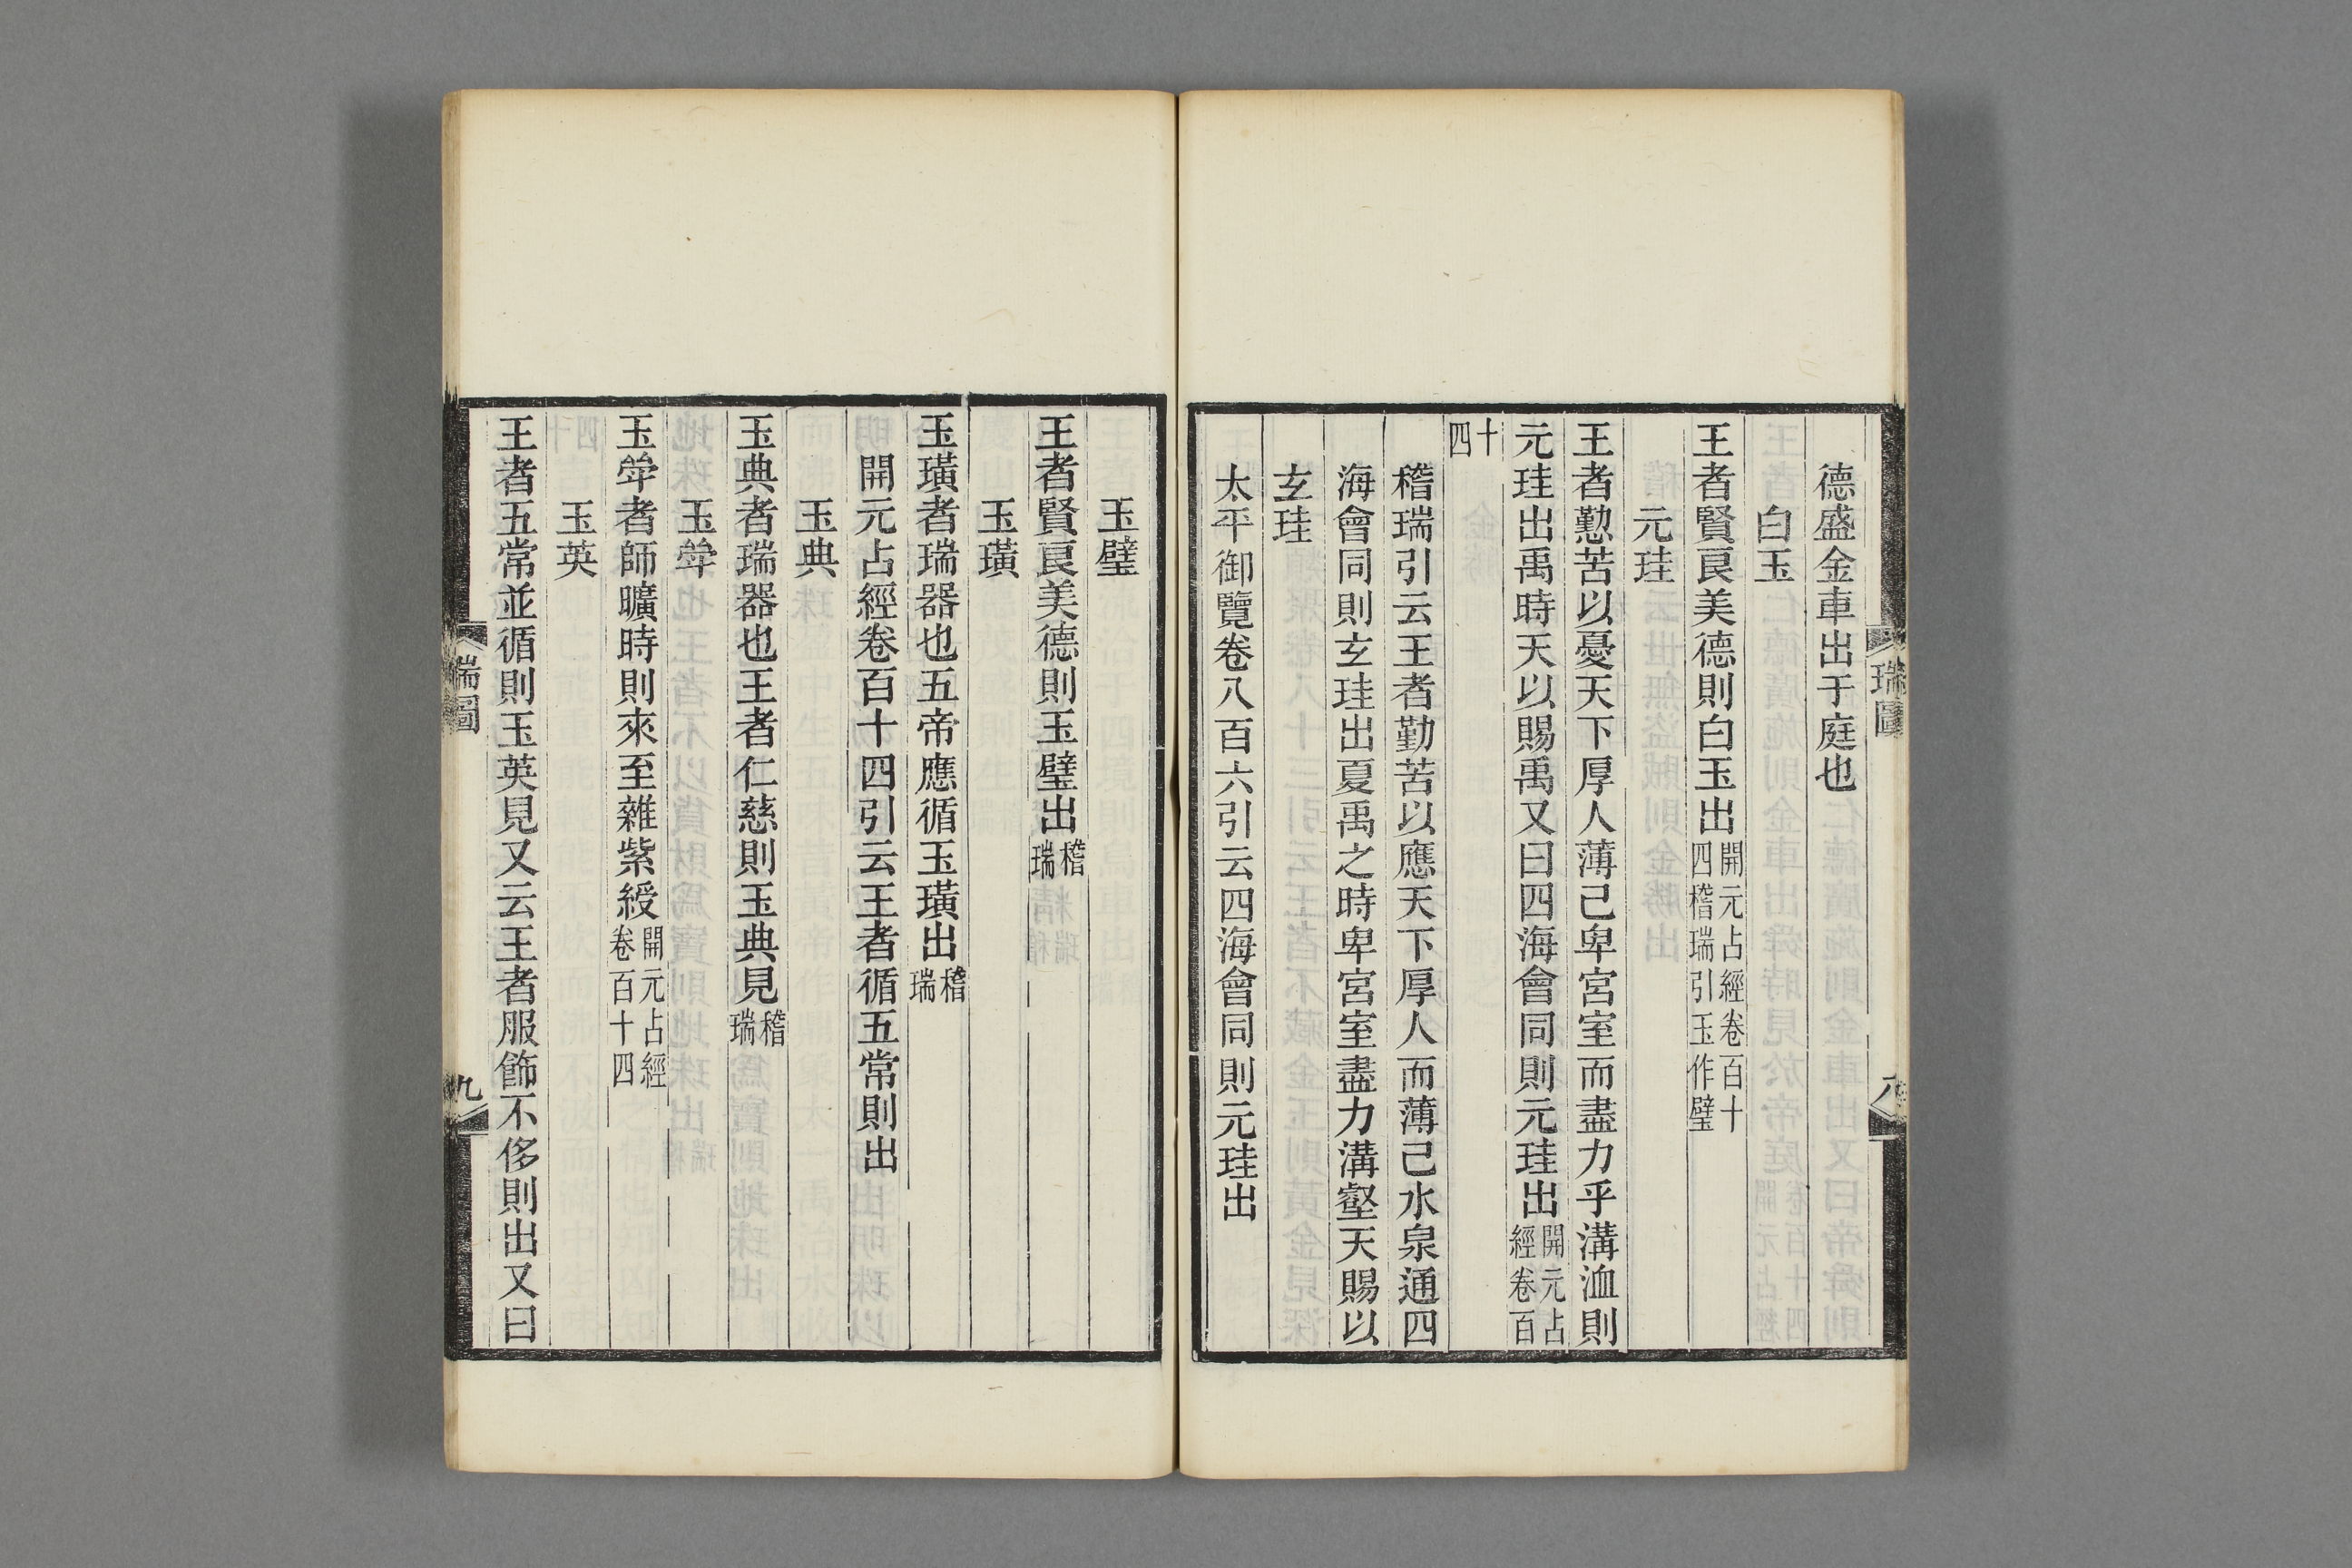 瑞圖
八
德盛金車出于庭也
白玉
王者賢良美德則白玉出開元占經卷百十四稽瑞引玉作璧
元珪
王者懃苦以憂天下厚人薄己卑宮室而盡力乎溝洫則
元珪出禹時天以賜禹又曰四海會同則元珪出開元占經卷百
十四
稽瑞引云王者勤苦以應天下厚人而薄己水泉通四
海會同則玄珪出夏禹之時卑宮室盡力溝壑天賜以
玄珪
太平御覽卷八百六引云四海會同則元珪出
玉璧
王者賢良美德則玉璧出稽瑞
玉璜
玉璜者瑞器也五帝應循玉璜出稽瑞
開元占經卷百十四引云王者循五常則出
玉典
玉典者瑞器也王者仁慈則玉典見稽瑞
玉斝
玉斝者師曠時則來至雜紫綬開元占經卷百十四
玉英
王者五常並循則玉英見又云王者服飾不侈則出又曰
瑞圖
九